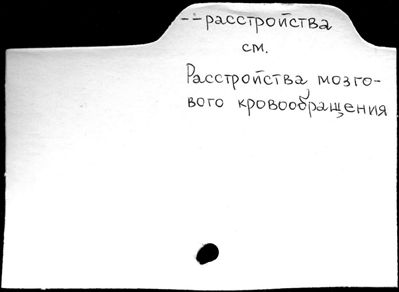 --расстройства
см.
Расстройства мозго-
вого кровообращения